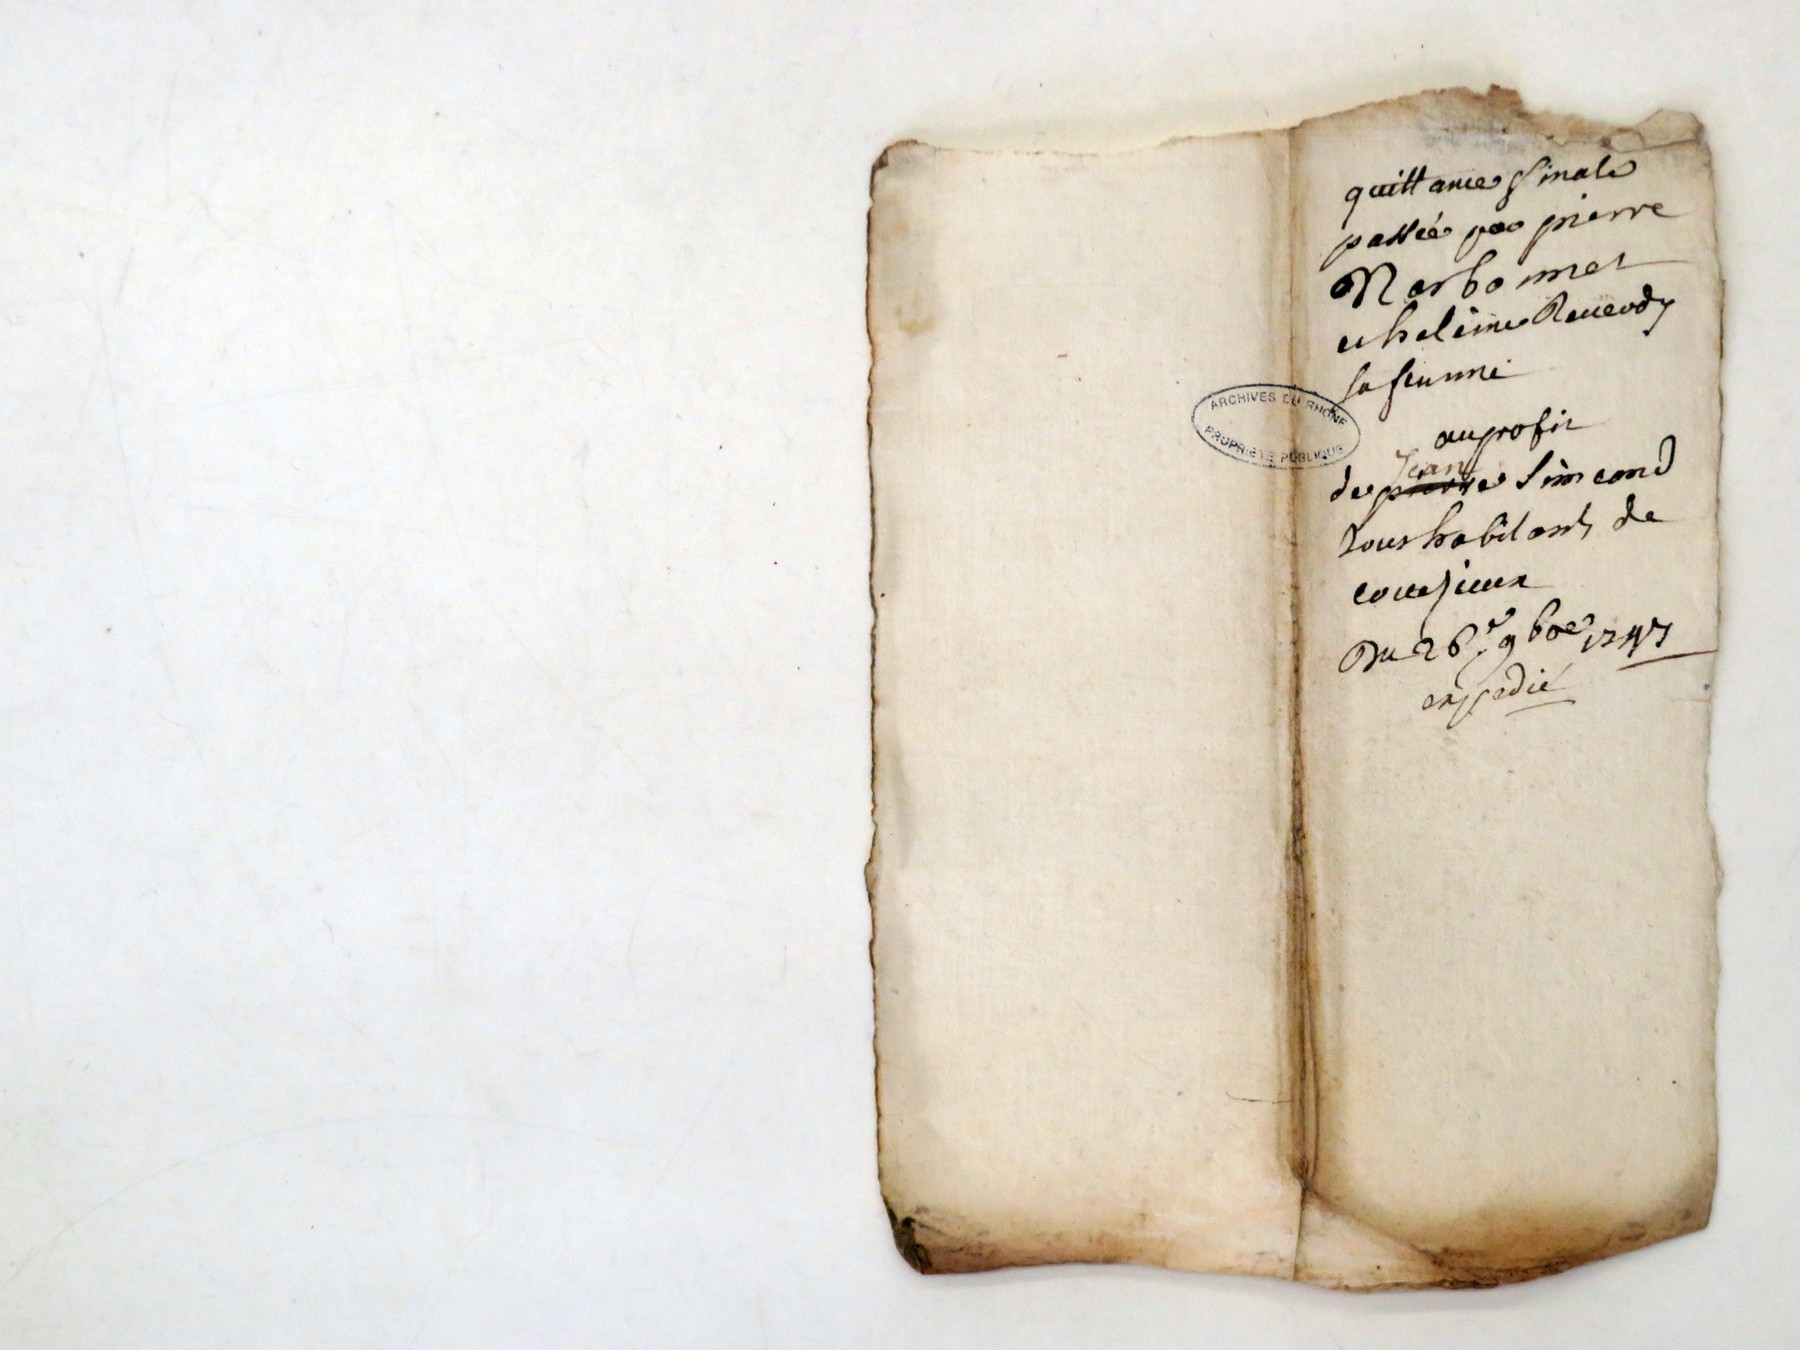 quittance finale
passée par pierre
Narbonnet
et heleine Reverdy
sa femme
au profit
Jean
de pierre Simeond
tous habitants de
couzieux
Du 26e 9bre 1747
expedié
ARCHIVES DU RHONE
PROPRIETE PUBLIQUE